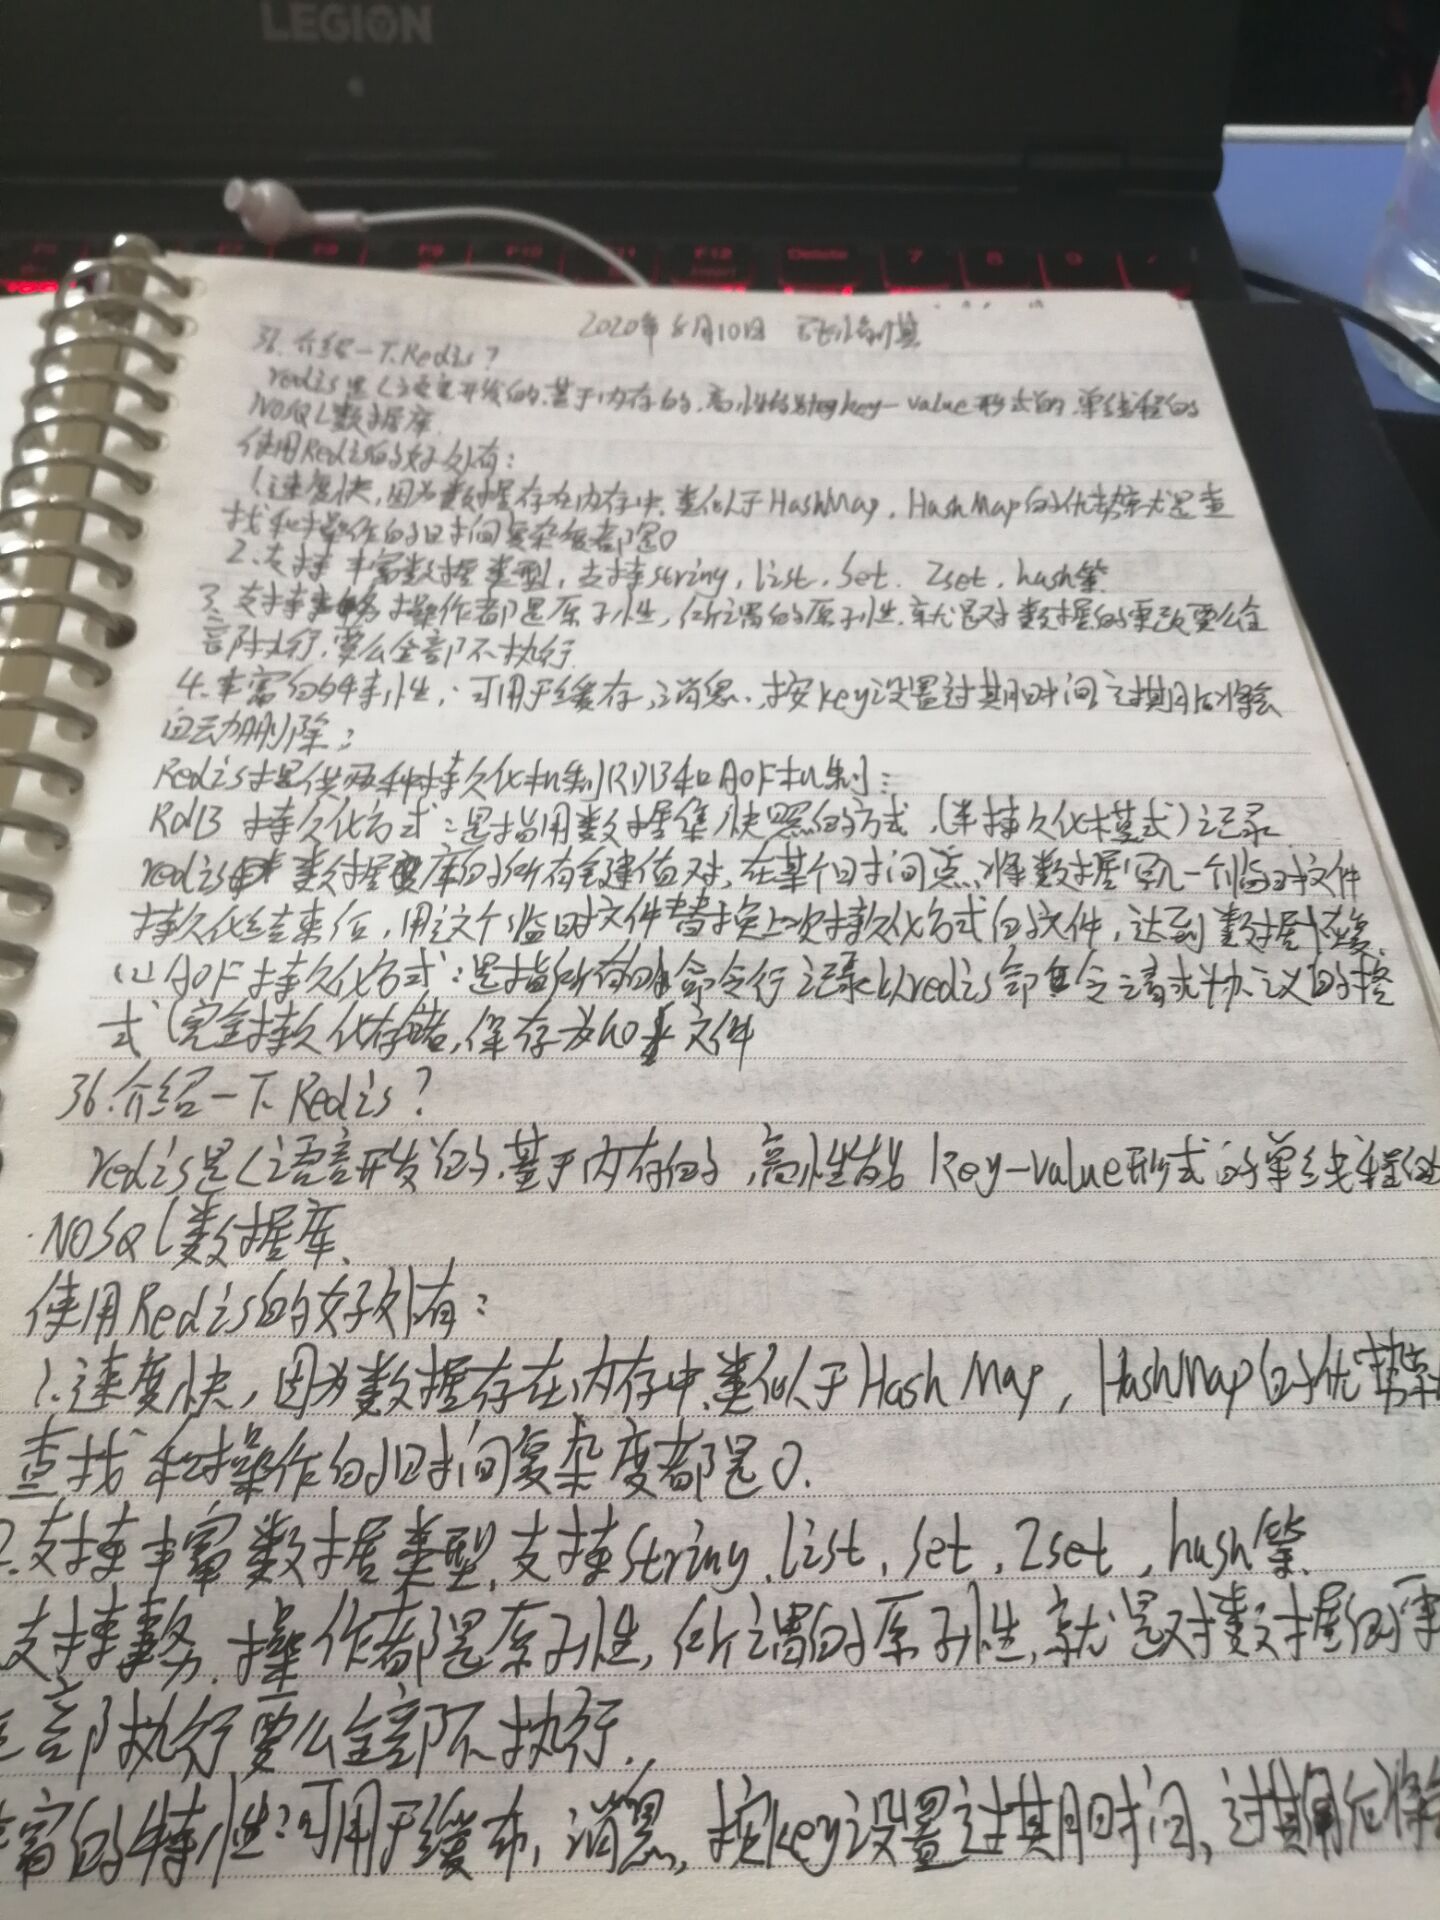 LEGION
F9
F10
F11
F12
Insert
Delete
7
8
9
2020年8月10日
36.介绍一下Redis?
redis是C语言开发的.基于内存的.高性能key-value形式的.单线程的
NOSQL数据库
使用Redis的好处有:
1.速度快,因为数据存在内存中.类似于HashMap,HashMap的优势就是查
找和操作的时间复杂度都是O
2.支持丰富数据类型,支持string,list,set,Zset,hash等
3.支持事务,操作都是原子性,所谓的原子性,就是对数据的更改要么全
部执行,要么全部不执行
4.丰富的特性:可用于缓存,消息,按key设置过期时间,过期后将会
自动删除:
Redis提供两种持久化机制RDB和AOF机制:
RdB持久化方式:是指用数据集快照的方式,(半持久化模式)记录
redis数据库的所有键值对,在某个时间点将数据写入一个临时文件
持久化结束后,用这个临时文件替换上次持久化方式的文件,达到数据恢复.
(2)AOF持久化方式:是指所有的命令行记录以redis命令请求协议的格
式(完全持久化存储,保存为文件
36.介绍一下Redis?
redis是C语言开发的.基于内存的,高性能key-value形式的单线程的
NOSQL数据库.
使用Redis的好处有:
1.速度快,因为数据存在内存中.类似于HashMap,HashMap的优势就
查找和操作的时间复杂度都是O.
2.支持丰富数据类型,支持string,list,set,Zset,hash等.
支持事务.操作都是原子性,所谓的原子性,就是对数据的更
全部执行要么全部不执行.
丰富的特性:可用于缓存,消息,按key设置过期时间,过期后将会